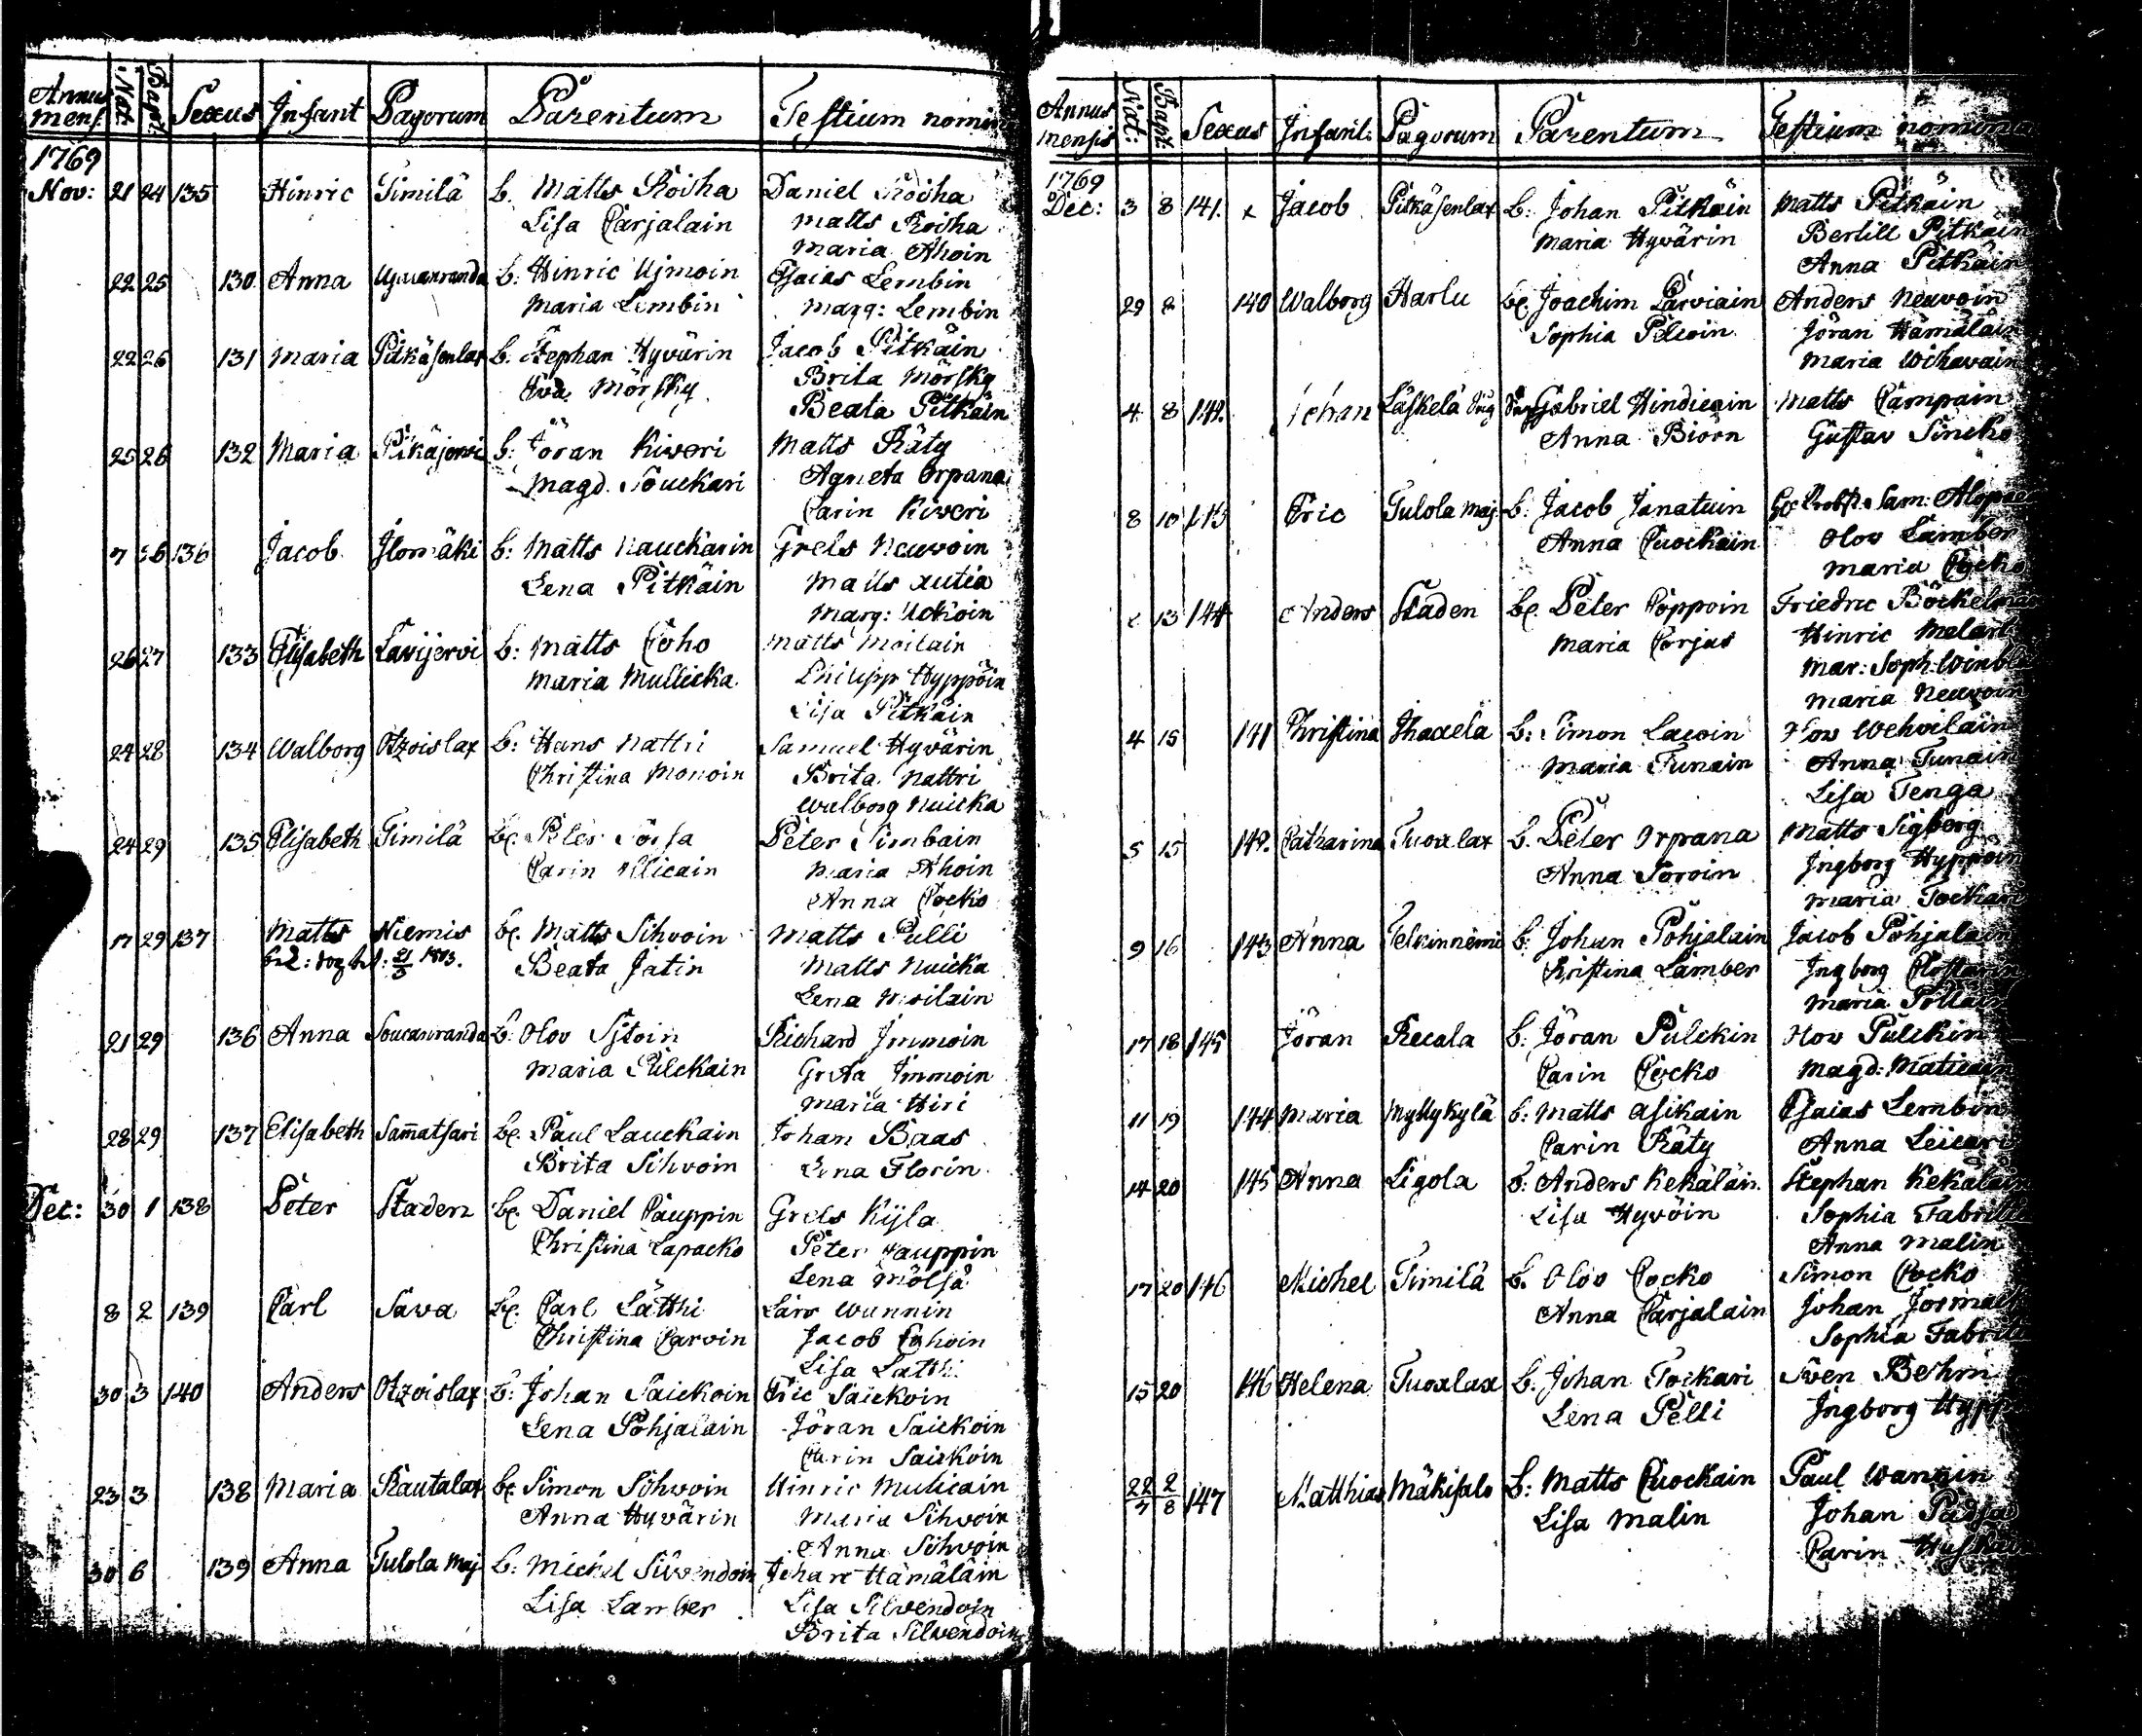 Annus mens. Nat: Bapt: Sexus Infant Pagorum Parentum Testium nomin
1769
Nov: 21 24 135 Hinric Timilä b. Matts Koisha Daniel Koisha
Lisa Carjalain Matts Koisha
Maria Ahoin
22 25 130 Anna b: Hinric Ujmoin Esaias Lembin
Maria Lembin Marg: Lembin
22 26 131 Maria Pitkäsenlax b. Stephan Hyvärin Jacob Pitkäin
Eva Mörsky Brita Mörsky
Beata Pitkäin
25 26 132 Maria b: Jöran Kiveri Matts Räty
Magd. Touckari Agneta Orpana
Carin Kiveri
7 26 136 Jacob Ilomäki b: Matts Nauckarin Grels Neuvoin
Lena Pitkäin Matts Autia
Marg: Uckoin
26 27 133 Elisabeth Lavijervi b: Matts Coho Matts Moilain
Maria Mullicka Philipp Hyppöin
Lisa Pitkäin
24 28 134 Walborg Otzoislax b: Hans Nattri Samuel Hyvärin
Christina Monoin Brita Nattri
Walborg Nuicka
24 29 135 Elisabeth Timilä bc. Peter Peter Simbain
Carin Maria Ahoin
Anna Cocko
17 29 137 Matts Niemis bc. Matts Sihvoin Matts Pulli
21/5 1803. Beata Jatin Matts Nuicka
Lena Moilain
21 29 136 Anna Soucanranda b: Olov Sjtoin Richard Immoin
Maria Pulckain Greta Immoin
Maria Hiri
28 29 137 Elisabeth Sam̄atsari bc. Paul Lauckain Johan Baas
Brita Sihvoin Lena Florin
Dec: 30 1 138 Peter Staden bc. Daniel Cauppin Grels Kijla
Christina Lapacko Peter Kauppin
Lena Mölsä
8 2 139 Carl Sava bc. Carl Lätthi Lars Wunnin
Christina Carvin Jacob
Lisa Latthi
30 3 140 Anders Otzoislax b: Johan Saickoin Eric Saickoin
Lena Pohjalain Jöran Saickoin
Carin Saickoin
23 3 138 Maria Rautalax bc Simon Sihvoin Hinric Mulicain
Anna Hyvärin Maria Sihvoin
Anna Sihvoin
30 6 139 Anna Tulola Maj b: Michel Silvendoin Johan Hämäläin
Lisa Lamber Lisa Silvendoin
Brita Silvendoin
Annus mensis Nat: Bapt: Sexus Infant: Pagorum Parentum Testium nomina
1769
Dec: 3 8 141. x Jacob Pitkäsenlax b: Johan Pitkäin Matts Pitkäin
Maria Hyvärin Bertill Pitkäin
Anna Pitkäin
29 8 140 Walborg Harlu bc Joachim Parviain Anders Neuvoin
Sophia Pelcoin Jöran Hämäläin
Maria Wihavain
4 8 142. Johan Läskelä Säg Gabriel Hindicain Matts Campain
Anna Biörn Gustav Sincko
8 10 143 Eric Tulola Maj b: Jacob Janatuin Probst. Sam: Alopae
Anna Cuockain Olov Lamber
Maria Cocko
13 144 Anders Staden bc. Peter Poppoin Friedric Böckelman
Maria Corjus Hinric Melart
Mar: Soph: Winbl
Maria Neuvoin
4 15 141 Christina Ihaxela b: Simon Lacoin Olov Wehvilain
Maria Tunain Anna Tunain
Lisa Tenga
5 15 142. Catharina Tuoxlax b. Peter Orpana Matts Sigberg
Anna Soroin Ingborg Hyppöin
Maria Tockari
9 16 143 Anna Telkinniemi b: Johan Pohjalain Jacob Pohjalain
Christina Lamber Ingborg
Maria
17 18 145 Jöran Recala b: Jöran Pulckin Olov Pulckin
Carin Cocko Magd: Maticain
11 19 144 Maria Myllykylä b: Matts Asikain Esaias Lembin
Carin Räty Anna
14 20 145 Anna Ligola b: Anders Kekäläin Stephan Kekäläin
Lisa Hyvöin Sophia
Anna Malin
17 20 146 Michel Timilä b. Olov Cocko Simon Cocko
Anna Carjalain Johan
Sophia
15 20 146 Helena Tuoxlax b. Johan Tockari Sven Behm
Lena Pelli Ingborg Hypp
22/7 2/8 147 Matthias Mäkisalo b: Matts Cuockain Paul Wanain
Lisa Malin Johan
Carin